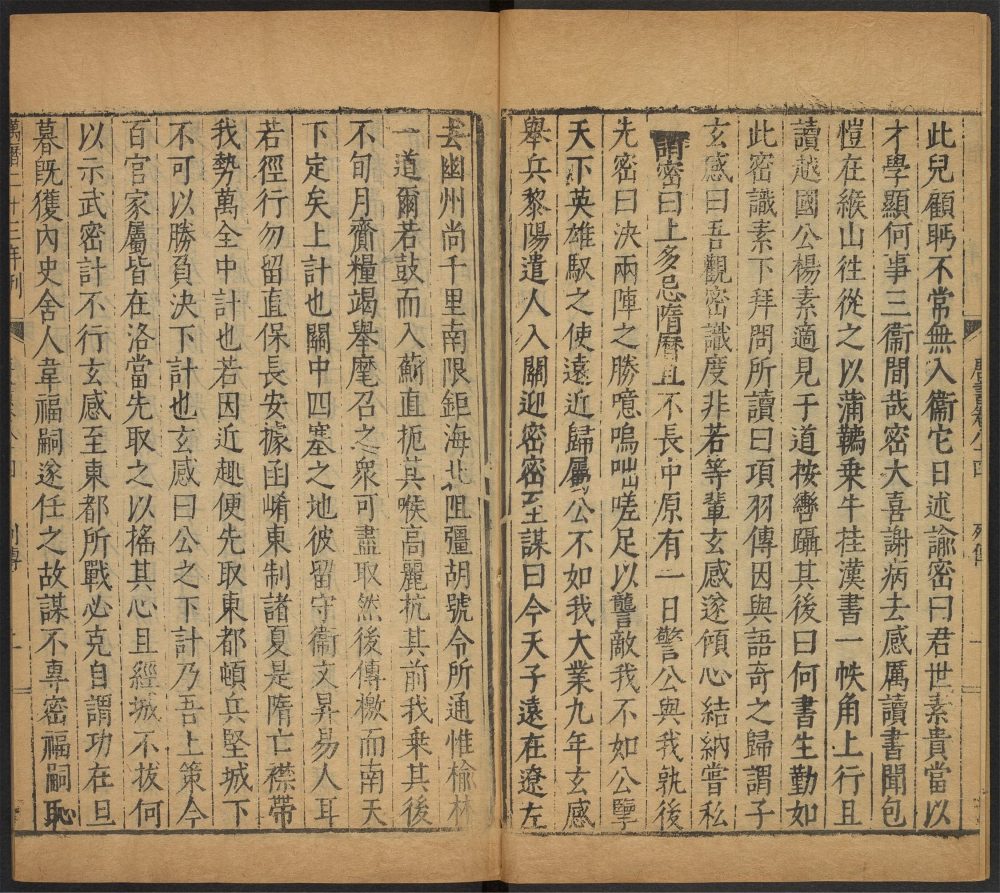 此兒顧眄不常無入衞它日述諭密曰君世素貴當以
才學顯何事三衞間哉密大喜謝病去感厲讀書聞包
愷在緱山往從之以蒲韉乗牛挂漢書一帙角上行且
讀越國公楊素適見于道按轡躡其後曰何書生勤如
此密識素下拜問所讀曰項羽傳因與語奇之歸謂子
玄感曰吾觀密識度非若等輩玄感遂傾心結納嘗私
謂密曰上多忌隋曆且不長中原有一日警公與我孰後
先密曰決兩陣之勝噫嗚咄嗟足以讋敵我不如公擥
天下英雄馭之使遠近歸屬公不如我大業九年玄感
舉兵黎陽遣人入關迎密密至謀曰今天子遠在遼左
去幽州尚千里南限鉅海北阻彊胡號令所通惟榆林
一道爾若鼓而入薊直扼其喉高麗抗其前我乗其後
不旬月齎糧竭舉麾召之衆可盡取然後傳檄而南天
下定矣上計也關中四塞之地彼留守衞文昇易人耳
若徑行勿留直保長安據函崤東制諸夏是隋亡襟帶
我勢萬全中計也若因近趣便先取東都頓兵堅城下
不可以勝負決下計也玄感曰公之下計乃吾上策今
百官家屬皆在洛當先取之以搖其心且經城不拔何
以示武密計不行玄感至東都所戰必克自謂功在旦
暮旣獲內史舍人韋福嗣遂任之故謀不專密福嗣恥
萬曆二十三年刊
列傳